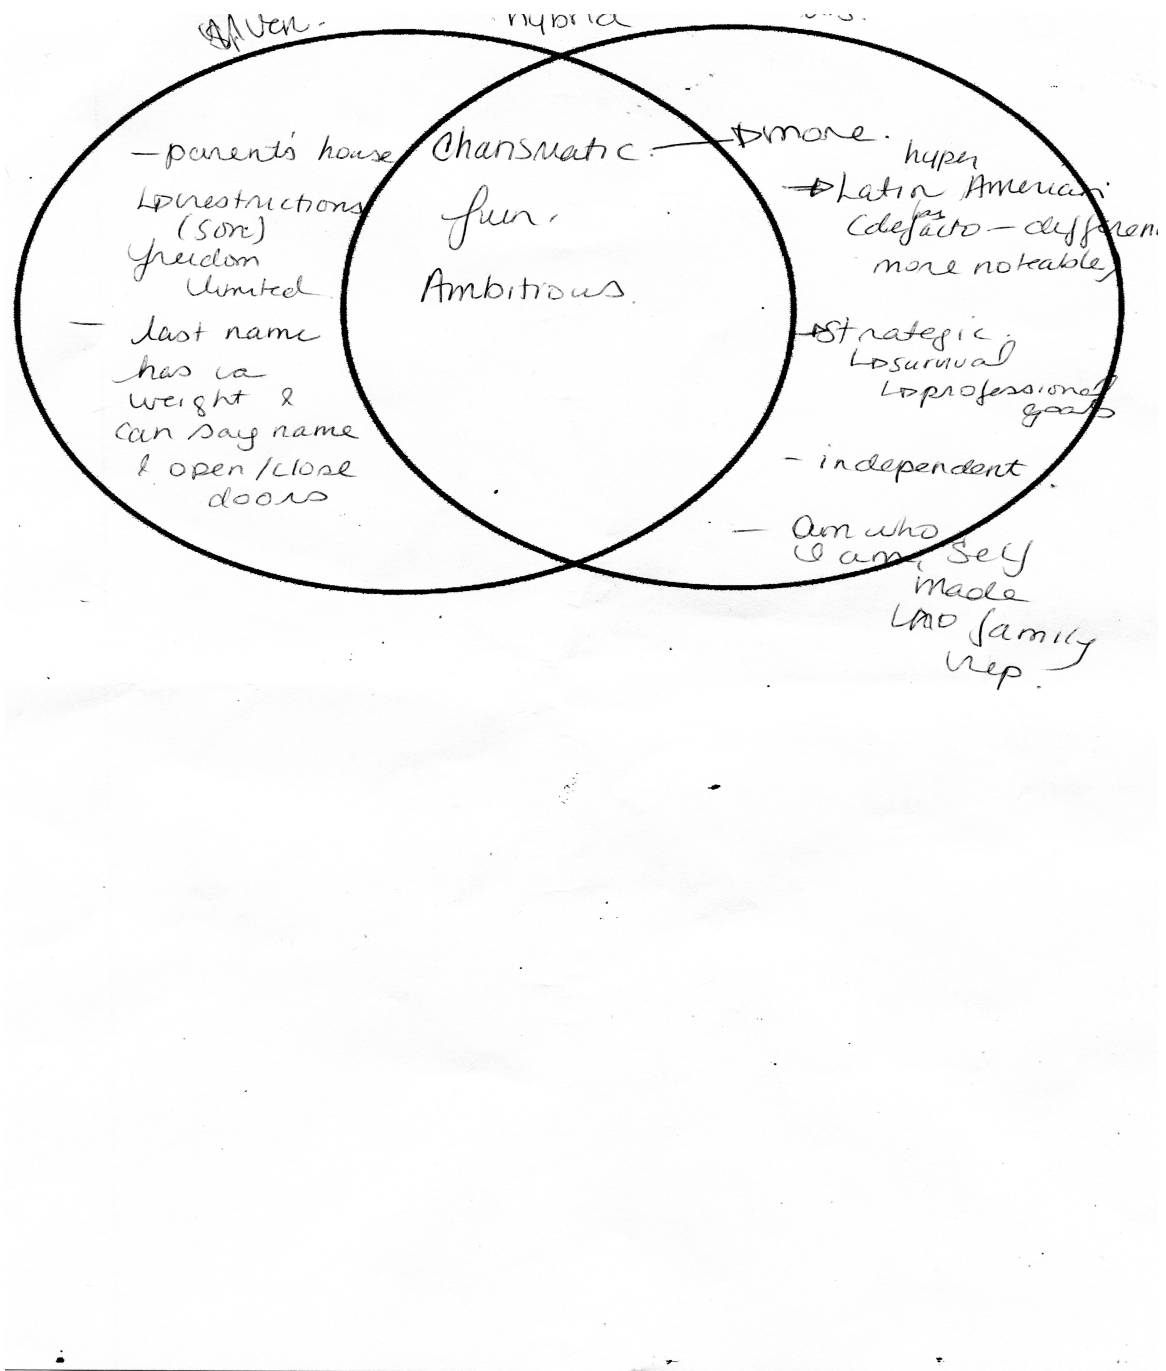 hybrid
- parent's house
↳ restrictions
(son)
freedom
limited
- last name
has a
weight &
can say name
& open/close
doors
Charismatic. → more.
fun.
Ambitious.
hyper
→ Latin American
(defacto - differen
more noteable)
→ Strategic.
↳ survival
↳ professional
goals
- independent
- am who
I am, self
made
↳ no family
rep.